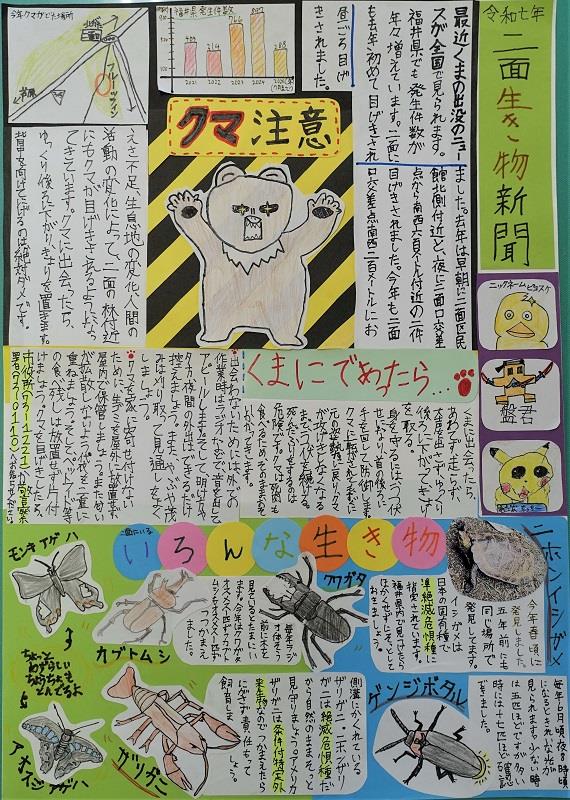 令和七年
二面生き物新聞
ニックネーム ピヨスケ
盤君
最近くまの出没のニュー
スが全国で見られます。
福井県でも発生件数が
年々増えています。二面に
も去年初めて目げきされ
ました。去年は早朝に二面区民
館北側付近と、夜に二面口交差
点から南西六百メートル付近の二件
目げきされました。今年も二面
口交差点南西二百メートルにお
昼ごろ目げ
きされました。
福井県発生件数
2021
2022
2023
2024
214
766
今年クマがでた場所
北陸
二面
フルーツライン
芦原
クマ注意
えさ不足、生息地の変化、人間の
活動の変化によって、二面の林付近
にもクマが目げきされるようになっ
てきています。クマに出会ったら、
ゆっくり後ろに下がりきょりを置きます。
背中を向けてにげるのは絶対ダメです。
くまにであったら…
くまに出会ったら、
あわてず、走らず、
大声を出さず、ゆっくり
後ろに下がってきょり
を取る。
身を守るには、うつ伏
せになり首の後ろに
手を回して防御します。
クマに転がされても、すぐに
元の姿勢に戻し、クマ
が攻げきしなくなる
までうつ伏せを続ける。
死んだふりをするのは
危険です。クマは死肉も
食べるため、そのままおそ
いかかってきます。
出会わないためには、外での
作業時はラジオなどで音を出して
アピールします。そして、明け方や
夕方、夜間の外出はできるだけ
控えましょう。また、やぶや茂
みは刈り取って見通しをよく
しましょう。
クマを家に寄せ付けない
ために、生ごみを屋外に放置せず
屋内で保管しましょう。また、においが
が拡散しないようにふくろを二重に
重ねましょう。そして、ペットフード等
の食べ残しは放置せず片付
けましょう。クマを目げきしたら、
市役所(73-1221)か警察
署(73-0110)へお知らせください
いろんな生き物
二面にいる
モンキアゲハ
カブトムシ
クワガタ
ニホンイシガメ
今年春頃に
発見しました。
五年前にも
同じ場所で
発見してます。
イシガメは
日本の固有種で
準絶滅危惧種に
指定されています。
福井県内で見つけたら
はかせずしそっとして
おきましょう。
ちょっと
めずらしい
ちょうちょも
とんでるよ
アオスジアゲハ
ザリガニ
側溝にかくれている
ザリガニ。ニホンザリ
ガニは絶滅危惧種だ
から自然のままそっと
見守りましょう。アメリカ
ザリガニは条件付特定外
来生物なのでつかまえたら
にがさず責任もって
飼育しま
しょう。
ゲンジボタル
毎年6月頃、夜8時頃
になるときれいな光が
見られます。少ない時
は五匹ほどですが、多い
時には十七匹ほど確認
できました。